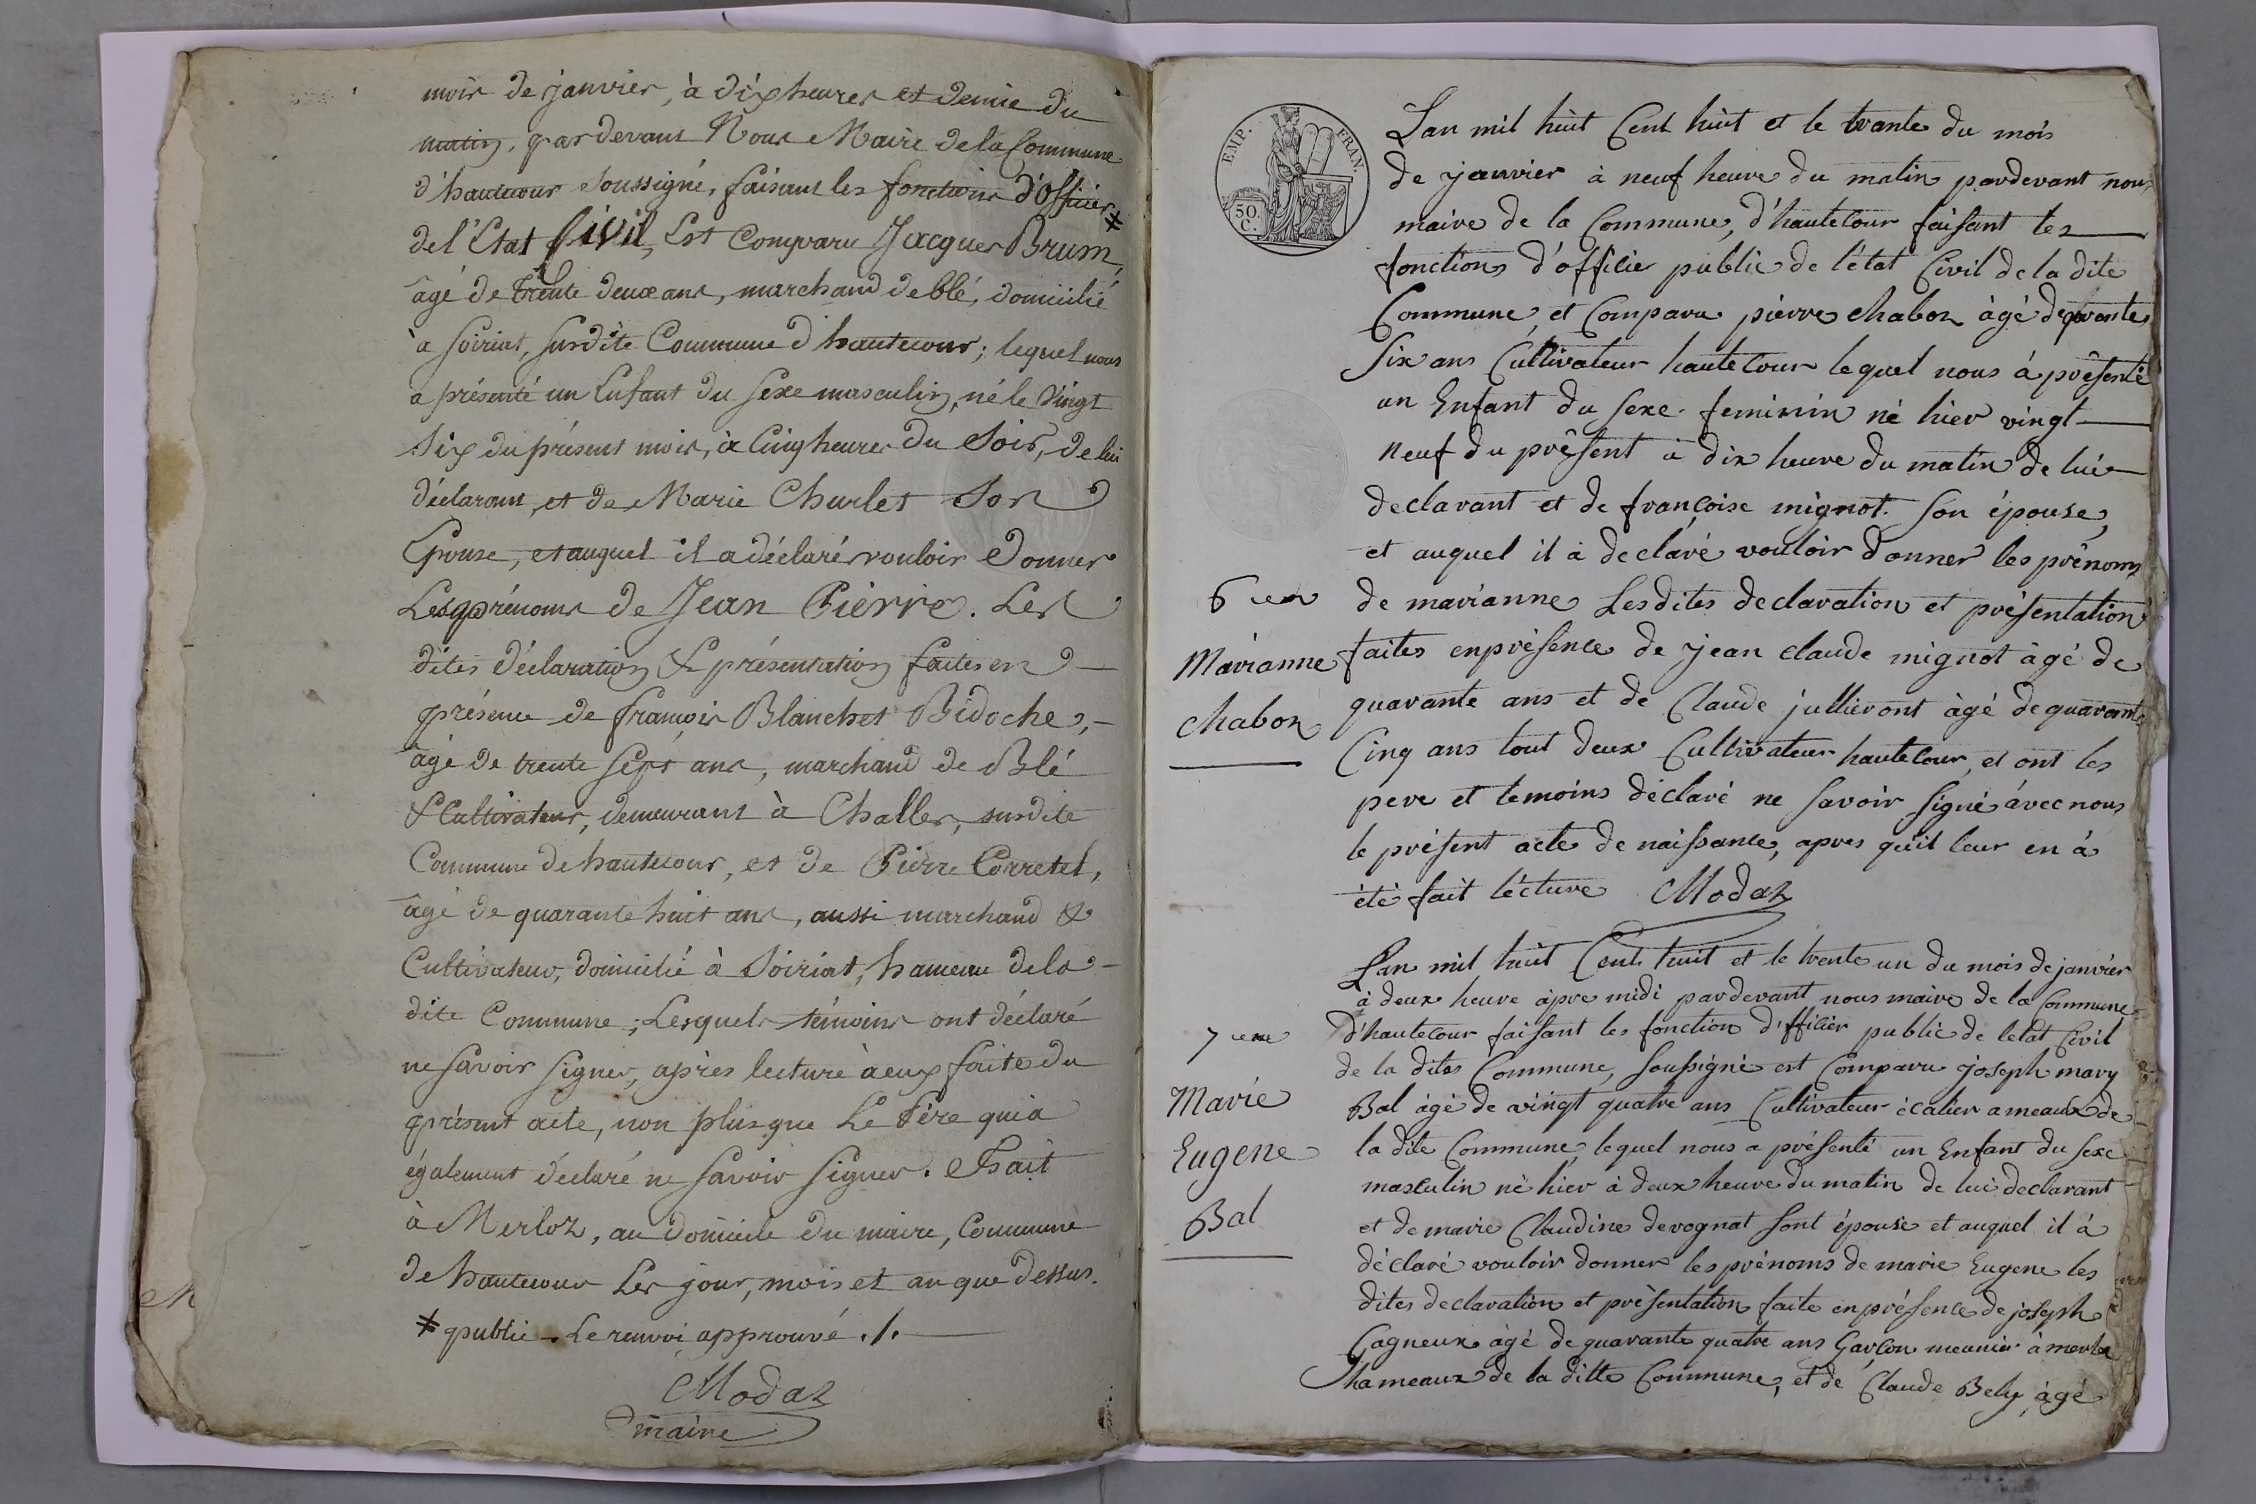 mois de janvier, à dix heures et demie du
matin, pardevant Nous Maire de la Commune
d'hautecour soussigné, faisant les fonctions d'Officier ⁎
de l'Etat Civil, Est Comparu Jacques Brum,
âgé de trente deux ans, marchand de blé, domicilié
à Soiriat, susdite Commune d'hautecour; lequel nous
a présenté un Enfant du sexe masculin, né le vingt
six du présent mois, à Cinq heures du Soir, de lui
déclarant, et de Marie Charlet Son
Epouse, et auquel il a déclaré vouloir Donner
Les prénoms de Jean Pierre. Les
dites déclaration & présentation faites en
présence de françois Blanchet Bidoche,
âgé de trente sept ans, marchand de Blé
& Cultivateur, demeurant à Challes, susdite
Commune de hautecour, et de Pierre Corretel,
âgé de quarante huit ans, aussi marchand &
Cultivateur, domicilié à Soiriat, hameau de la
dite Commune; Lesquels témoins ont déclaré
ne savoir signer, après lecture à eux faite du
présent acte, non plus que Le Père qui a
également déclaré ne savoir signer. Fait
à Merloz, au domicile du maire, Commune
de hautecour Les jour, mois et an que dessus.
⁎ public. Le renvoi approuvé ./.
Modas
maire
EMP. FRAN.
50.
C.
Lan mil huit Cent huit et le trante du mois
de janvier à neuf heure du matin pardevant nous
maire de la Commune, d'hautecour faisant les
fonctions d'officier public de l'état Civil de la dite
Commune, et Comparu pierre chabon âgé de
Six ans Cultivateur hautecour lequel nous à présenté
un Enfant du sexe feminin né hier vingt
neuf du présent à dix heure du matin de lui
declarant et de françoise mignot son épouse,
et auquel il à declaré vouloir donner les prénoms
6 eme de marianne Lesdites declaration et présentation
Marianne faites en présence de jean claude mignot âgé de
chabon quarante ans et de Claude jullieront âgé de quarante
Cinq ans tout deux Cultivateur hautecour, et ont les
pere et temoins déclaré ne savoir signé avec nous
le présent acte de naissance, apres qu'il leur en à
été fait lécture Modas
Lan mil huit Cent huit et le trente un du mois de janvier
à deux heure àpre midi pardevant nous maire de la Commune
7 eme d'hautecour faisant les fonction d'fficier public de letat Civil
de la dites Commune, soussigné est Comparu joseph mary
Marie Bal âgé de vingt quatre ans Cultivateur écatier ameaux de
Eugene la dite Commune, lequel nous a présenté un Enfant du sexe
masculin né hier à deux heure du matin de lui declarant
Bal et de marie Claudine devognat sont épouse et auquel il à
déclaré vouloir donner les prénoms de marie Eugene les
dites declaration et présentation faite en présence de joseph
Cagneux âgé de quarante quatre ans Garçon meunier à
hameaux de la ditte Commune, et de Claude Bely âgé